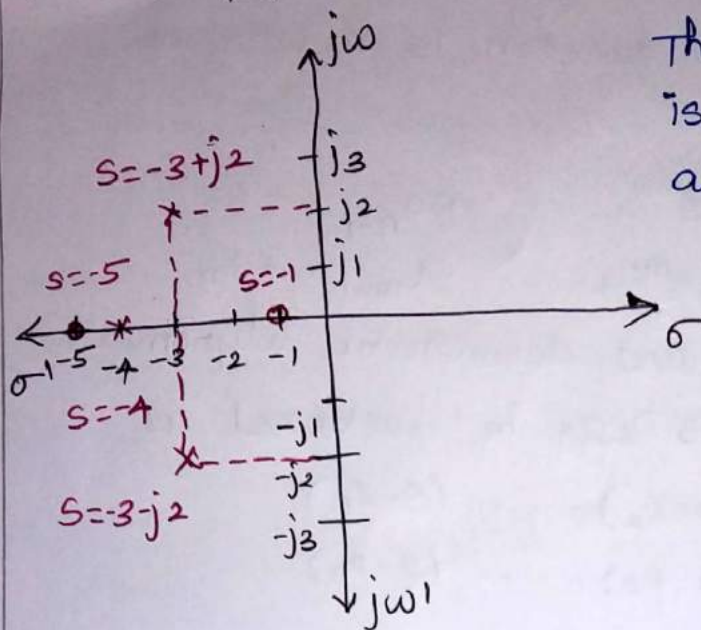 jω
Th
is
a
S=-3+j2
j3
j2
s=-5
s=-1
j1
σ
σ1
-5
-4
-3
-2
-1
S=-4
-j1
-j2
S=-3-j2
-j3
jω1